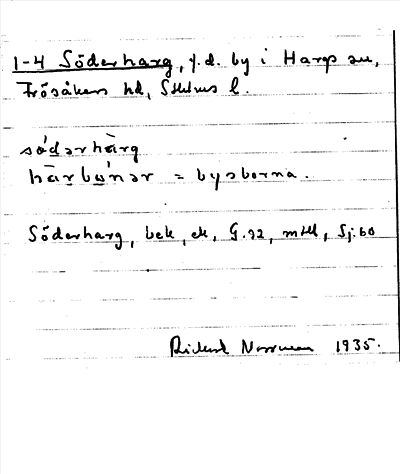 1-4 Söderharg, f.d. by i Hargs sn,
Frösåkers hd, Sthlms l.
södərhàrg
hàrbúnər = bysborna.
Söderharg, bek, ek, G.92, mtll, Sj:bo
Rickard Norrman 1935.